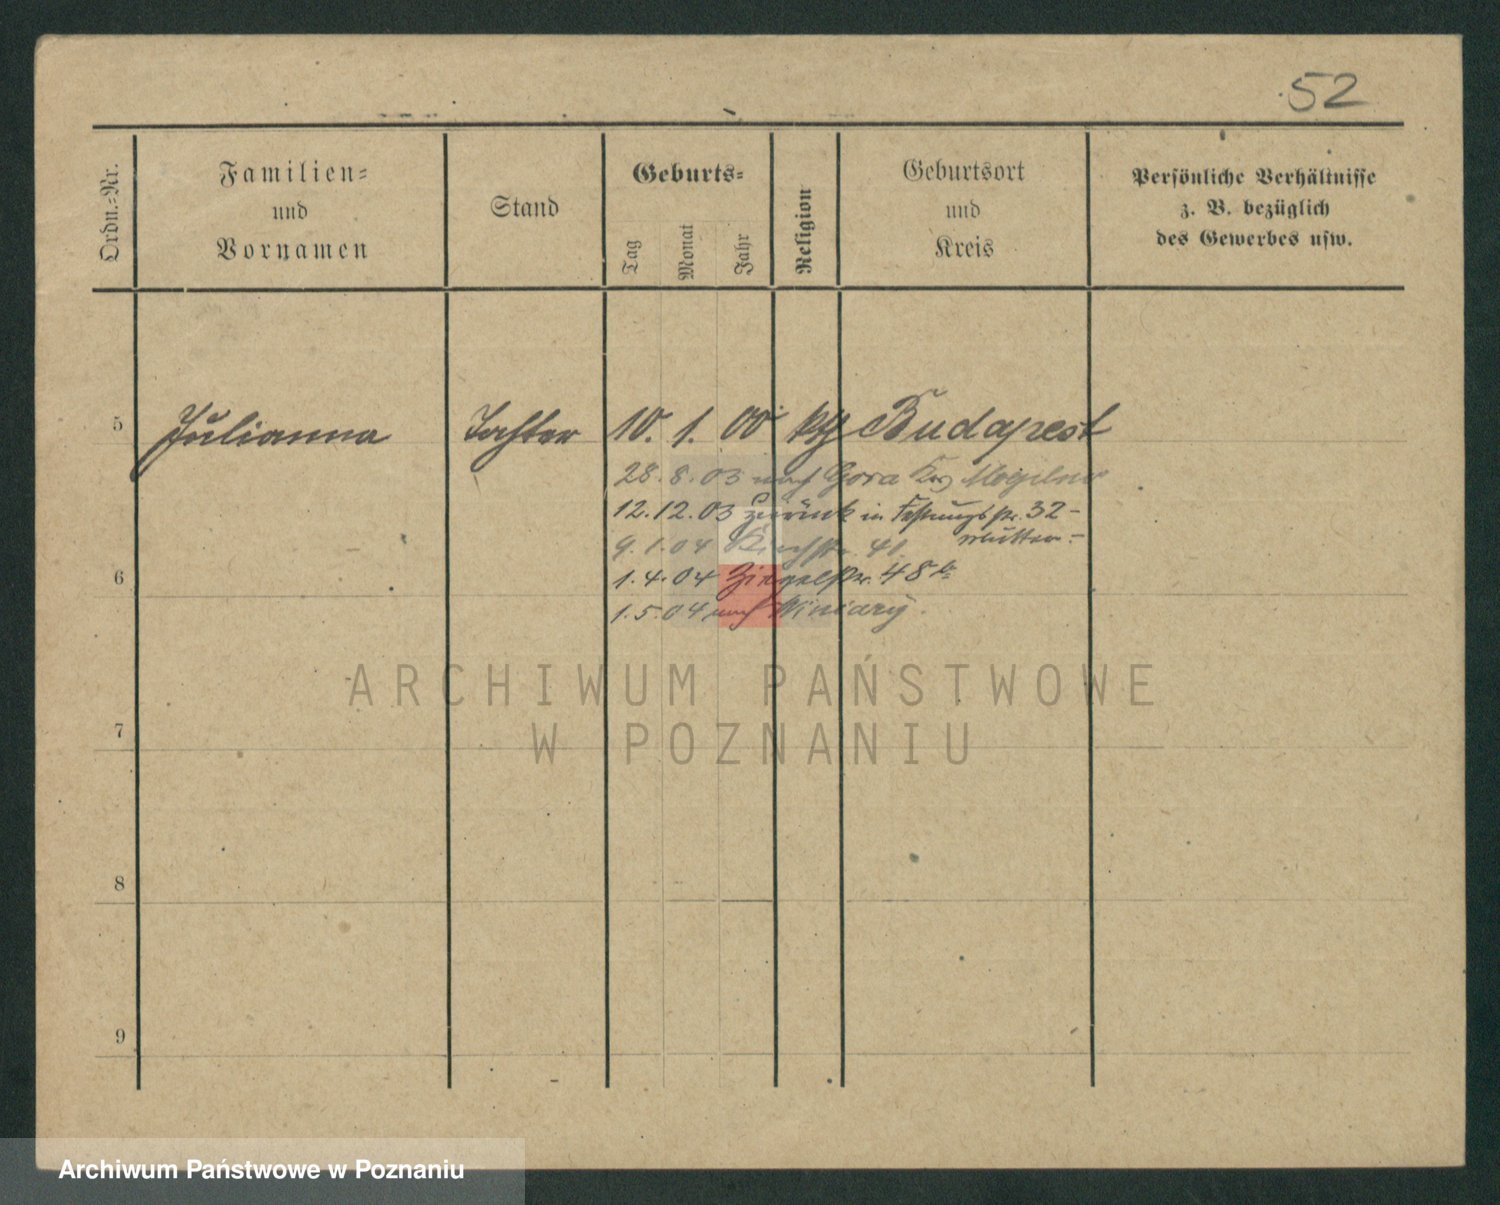 52
Ordn.-Nr.
Familien-
und
Vornamen
Stand
Geburts-
Tag
Monat
Jahr
Religion
Geburtsort
und
Kreis
Persönliche Verhältnisse
z. B. bezüglich
des Gewerbes usw.
5 Julianna Tochter 10. 1. 00 Budapest
28. 8. 03 nach Gora Mogilno
12. 12. 03 zurück in Festungsstr. 32 -
Mutter. -
9. 1. 04 Kirchstr. 40.
6 1. 4. 04 Ziegelstr. 48
1. 5. 04 nach Winiary.
ARCHIWUM PAŃSTWOWE
W POZNANIU
7
8
9
Archiwum Państwowe w Poznaniu